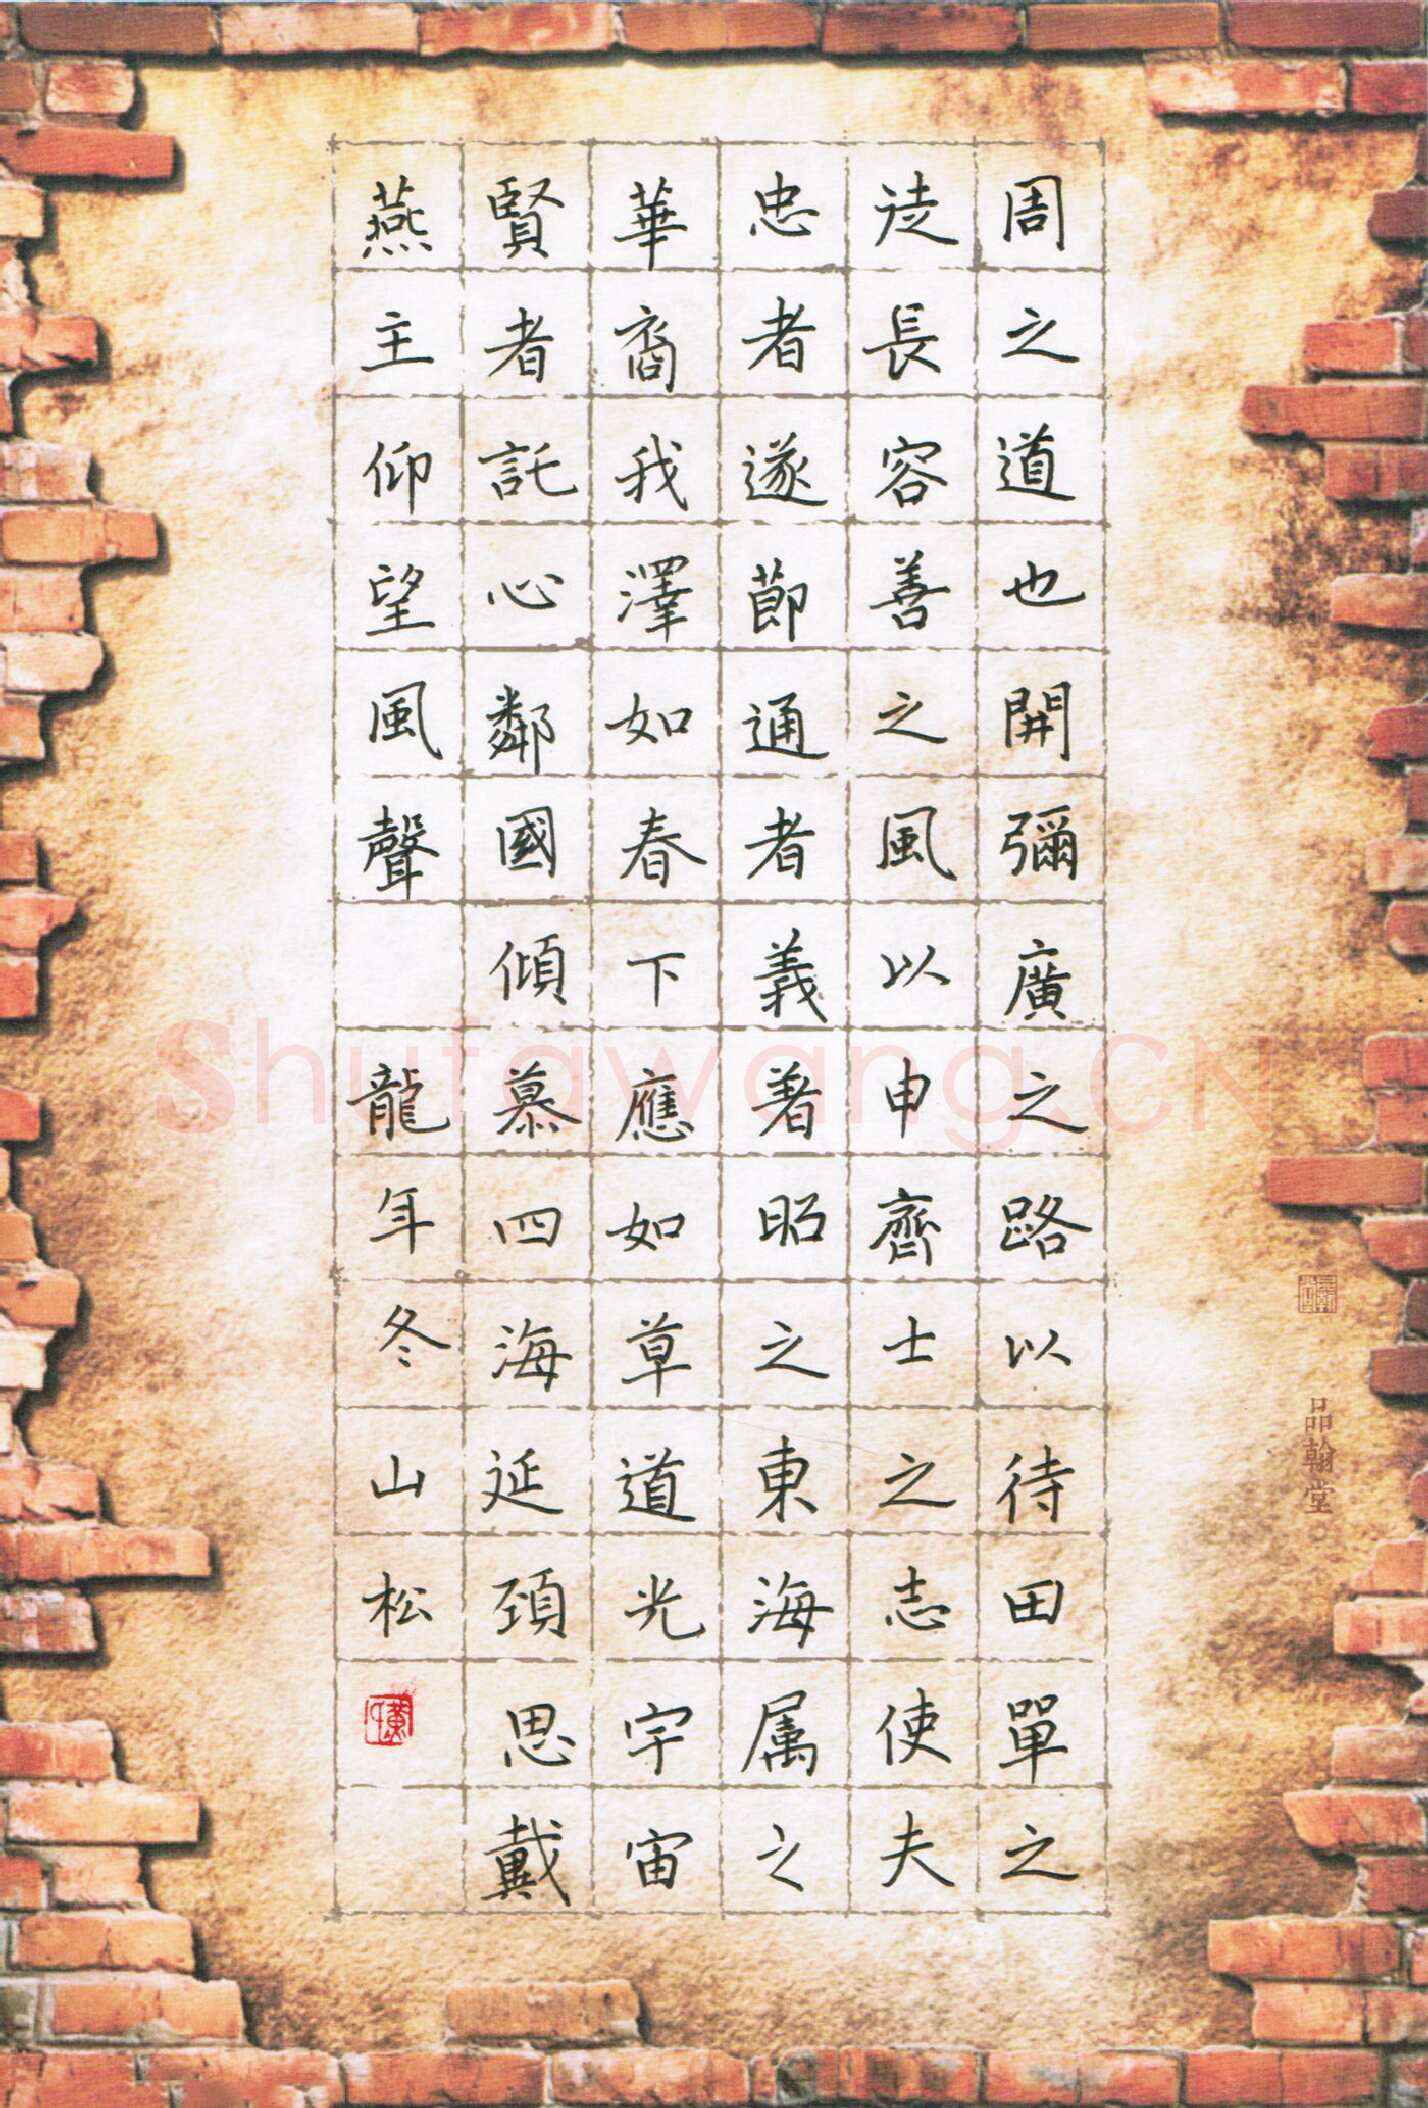 周之道也開彌廣之路以待田單之
徒長容善之風以申齊士之志使夫
忠者遂節通者義著昭之東海属之
華裔我澤如春下應如草道光宇宙
賢者託心鄰國傾慕四海延頸思戴
燕主仰望風聲 龍年冬山松
品翰堂
Shufawang.CN